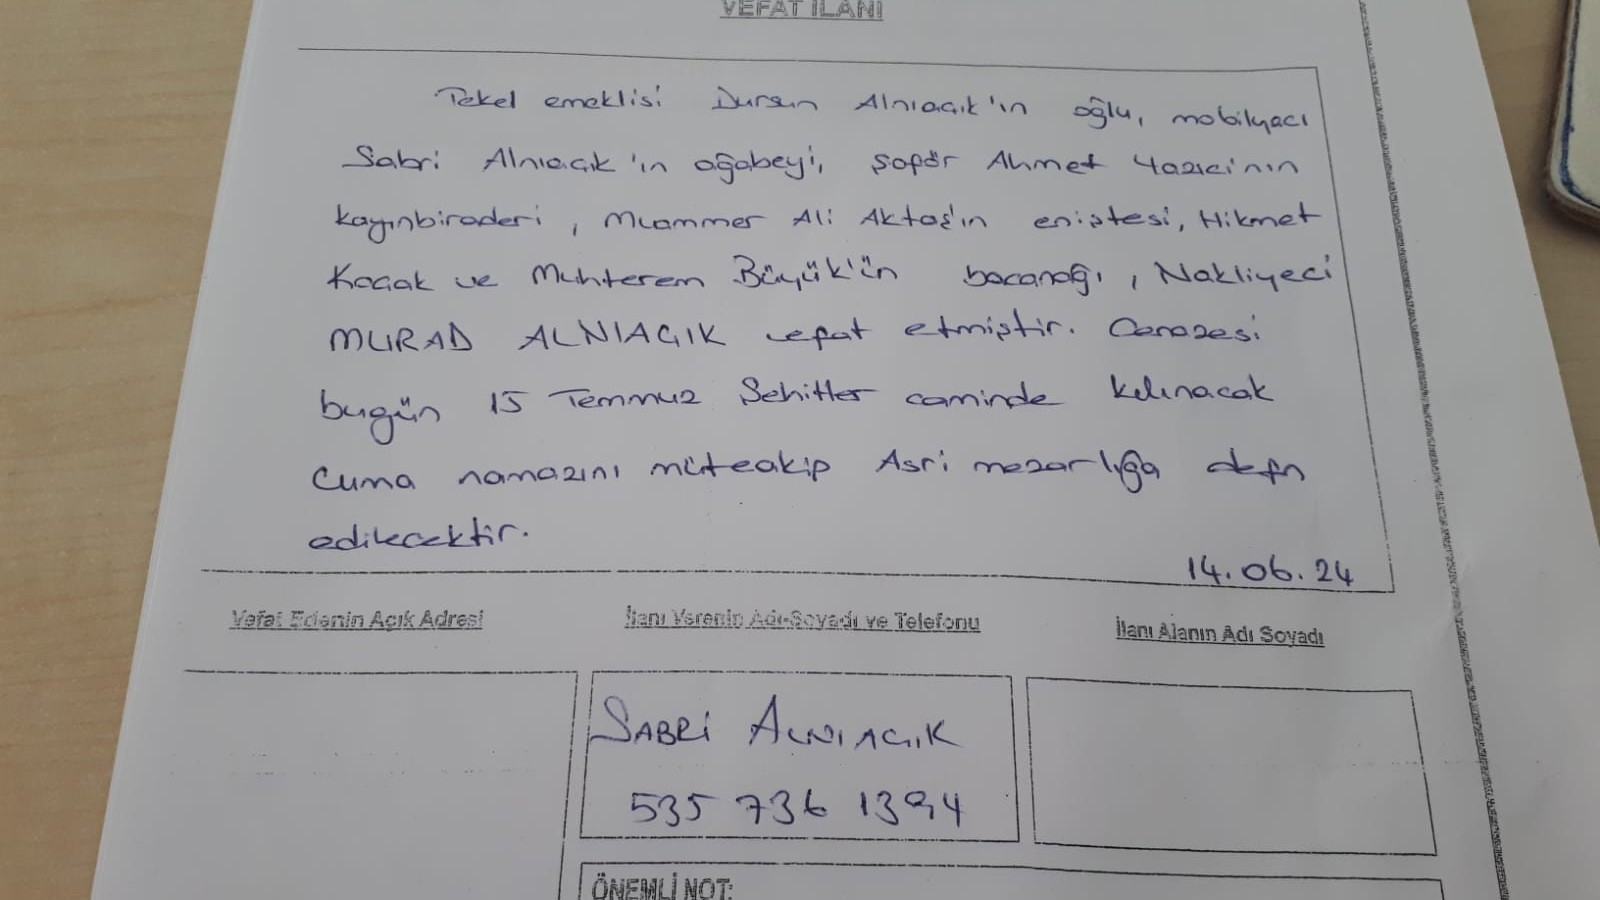 VEFAT İLANI
Tekel emeklisi Dursun Alnıaçık'ın oğlu, mobilyacı
Sabri Alnıaçık'ın ağabeyi, şoför Ahmet Yazıcı'nın
kayınbiraderi, Muammer Ali Aktaş'ın eniştesi, Hikmet
Koçak ve Muhterem Büyük'ün bacanağı, Nakliyeci
MURAD ALNIAÇIK vefat etmiştir. Cenazesi
bugün 15 Temmuz Şehitler caminde kılınacak
Cuma namazını müteakip Asri mezarlığa defn
edilecektir.
14.06.24
Vefat Edenin Açık Adresi
İlanı Verenin Adı-Soyadı ve Telefonu
İlanı Alanın Adı Soyadı
SABRİ ALNIAÇIK
535 736 1394
ÖNEMLİ NOT: